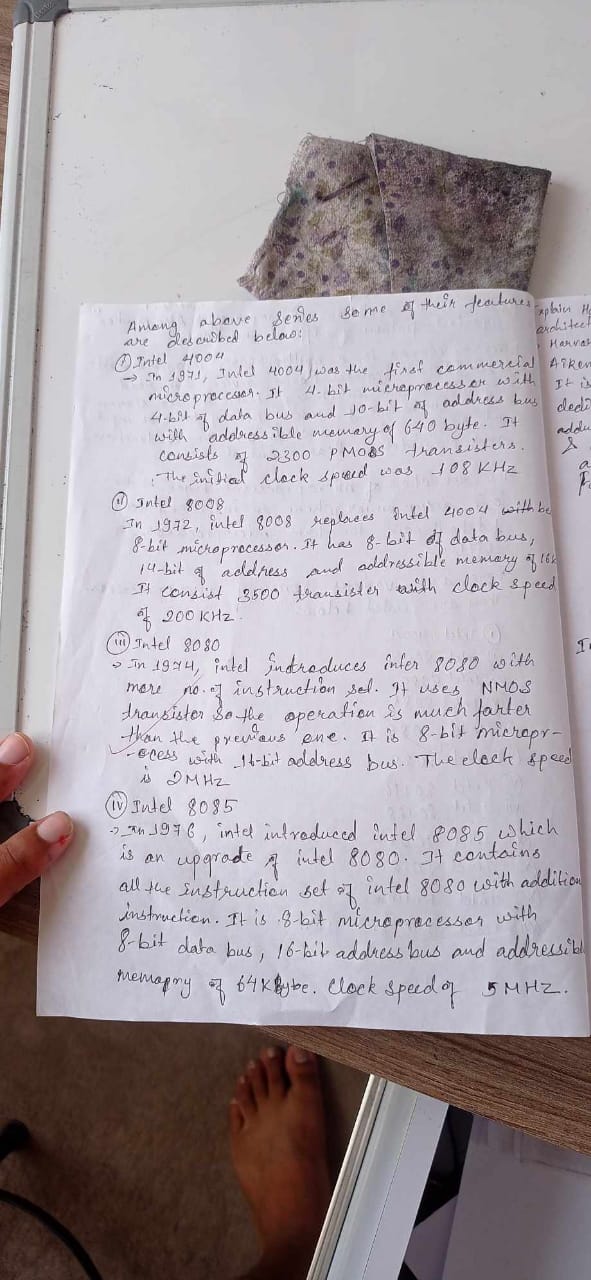 Among above series some of their features
are described below:
(i) Intel 4004
→ In 1971, Intel 4004, was the first commercial
microprocessor. It 4-bit microprocessor with
4-bit of data bus and 10-bit of address bus
with addressible memory of 640 byte. It
consists of 2300 PMOS transisters.
The initial clock speed was 108 KHz
(ii) Intel 8008
In 1972, intel 8008 replaces intel 4004 with be
8-bit microprocessor. It has 8-bit of data bus,
14-bit of address and addressible memory of 16k
It consist 3500 transister with clock speed
of 200 KHz.
(iii) Intel 8080
→ In 1974, intel introduces 8080 with
more no. of instruction set. It uses NMOS
transistor so the operation is much farter
than the previous one. It is 8-bit micropr-
-ocess with 16-bit address bus. The clock speed
is 2MHz
(iv) Intel 8085
→ In 1976, intel introduced intel 8085 which
is an upgrade of intel 8080. It contains
all the instruction set of intel 8080 with addition
instruction. It is 8-bit microprocessor with
8-bit data bus, 16-bit address bus and addressibl
memory of 64Kbyte. Clock speed of 5MHZ.
xplain
architect
Harvar
Aiken
It is
dedi